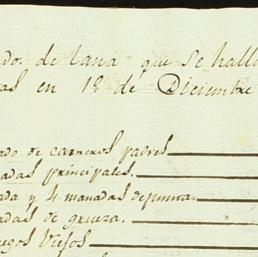 ado. de lana que se hallo
as en 18 de Diciembre
ado de carneros padres
adas principales.
ada y 4. manadas depunta.
adas de grueza.
egos Viejos